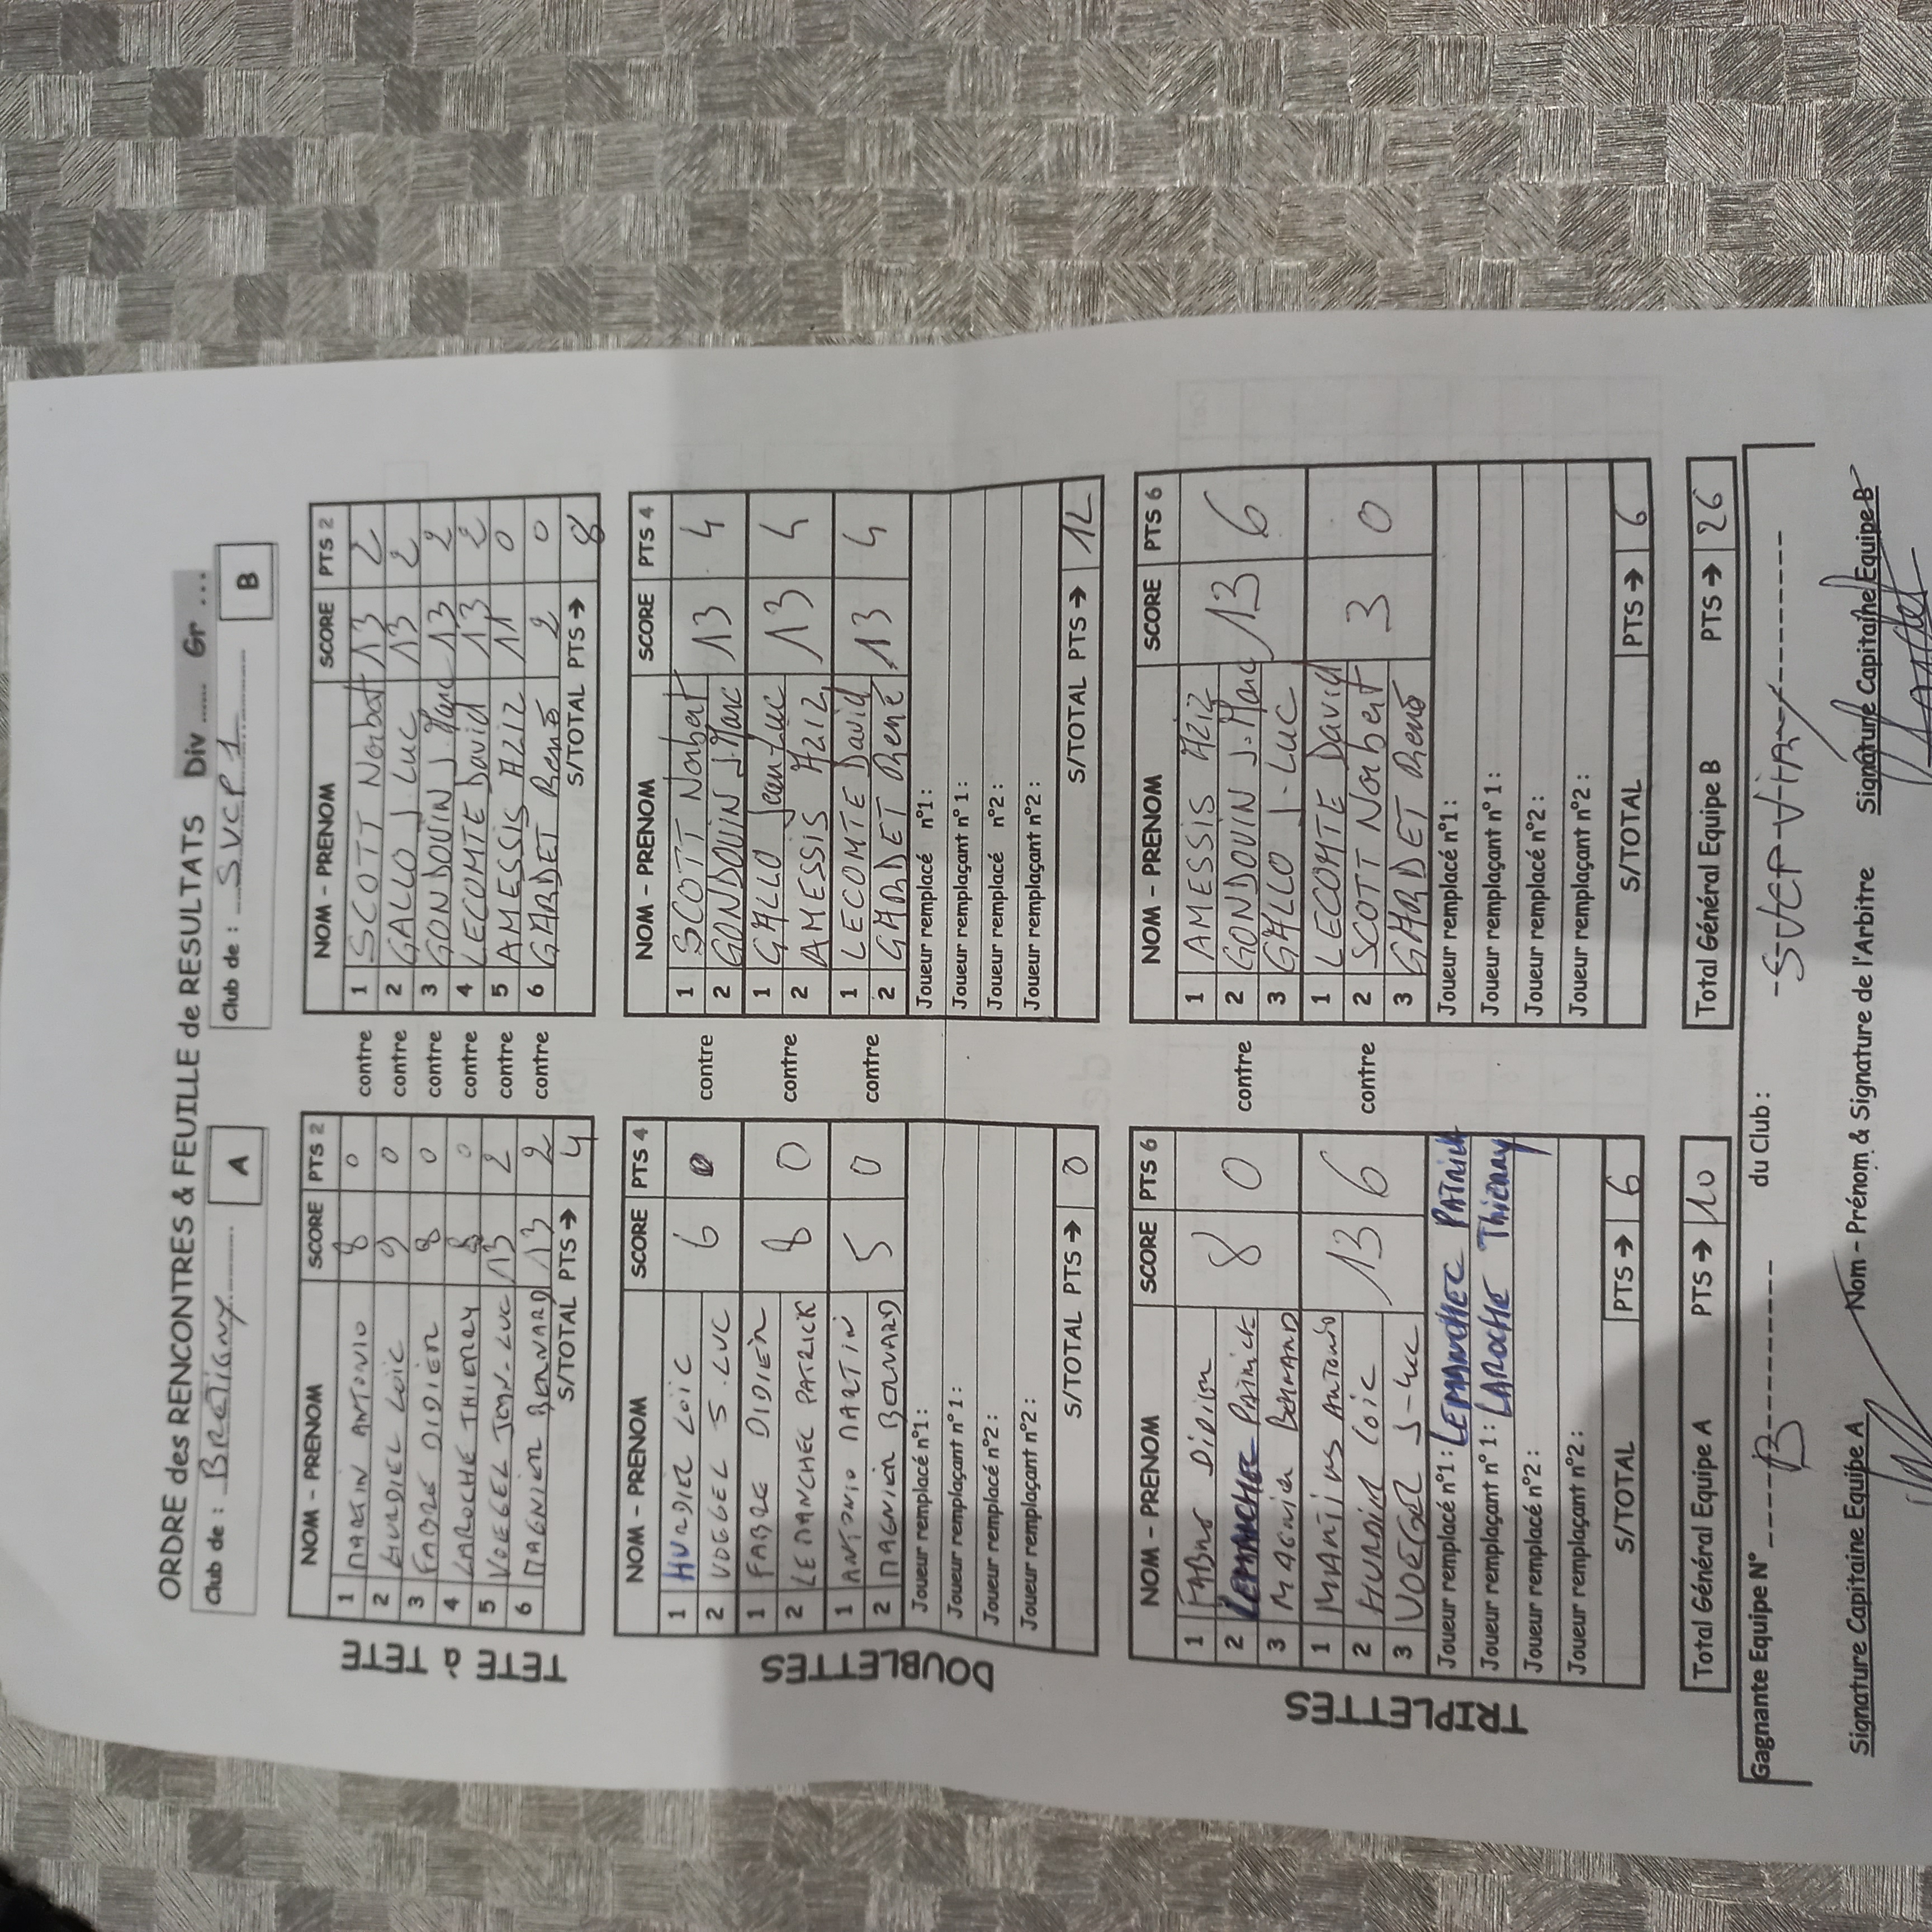 ORDRE des RENCONTRES & FEUILLE de RESULTATS Div ...... Gr ...
Club de : BRETIGNY A
Club de : SVCP1 B
TETE à TETE
NOM - PRENOM SCORE PTS 2 NOM - PRENOM SCORE PTS 2
1 MARTIN ANTONIO 8 0 contre 1 SCOTT Norbert 13 2
2 HURDIEL LOIC 9 0 contre 2 GALLO J. LUC 13 2
3 FABRE DIDIER 8 0 contre 3 GONDOUIN J. Marc 13 2
4 LAROCHE THIERRY 8 0 contre 4 LECOMTE David 13 2
5 VOEGEL JEAN-LUC 13 2 contre 5 AMESSIS AZIZ 11 0
6 MAGNIER BERNARD 13 2 contre 6 GARDET René 2 0
S/TOTAL PTS → 4 S/TOTAL PTS → 8
DOUBLETTES
NOM - PRENOM SCORE PTS 4 NOM - PRENOM SCORE PTS 4
1 HURDIEL LOÏC 6 0 contre 1 SCOTT Norbert 13 4
2 VOEGEL J.LUC 2 GONDOUIN J.Marc
1 FABRE DIDIER 8 0 contre 1 GALLO Jean Luc 13 4
2 LEMANCHEC PATRICK 2 AMESSIS AZIZ
1 ANTONIO MARTIN 5 0 contre 1 LECOMTE David 13 4
2 MAGNIER BERNARD 2 GARDET René
Joueur remplacé n°1: Joueur remplacé n°1:
Joueur remplaçant n°1: Joueur remplaçant n°1:
Joueur remplacé n°2: Joueur remplacé n°2:
Joueur remplaçant n°2: Joueur remplaçant n°2:
S/TOTAL PTS → 0 S/TOTAL PTS → 12
TRIPLETTES
NOM - PRENOM SCORE PTS 6 NOM - PRENOM SCORE PTS 6
1 FABRE Didier 8 0 contre 1 AMESSIS AZIZ 13 6
2 LEMANCHEC PATRICK 2 GONDOUIN J.Marc
3 MAGNIER BERNARD 3 GALLO J-LUC
1 Antonio 13 6 contre 1 LECOMTE David 3 0
2 HURDIEL LOIC 2 SCOTT Norbert
3 VOEGEL J-LUC 3 GARDET René
Joueur remplacé n°1: LEMANCHEC PATRICK Joueur remplacé n°1:
Joueur remplaçant n°1: LAROCHE Thierry Joueur remplaçant n°1:
Joueur remplacé n°2: Joueur remplacé n°2:
Joueur remplaçant n°2: Joueur remplaçant n°2:
S/TOTAL PTS → 6 S/TOTAL PTS → 6
Total Général Equipe A PTS → 10 Total Général Equipe B PTS → 26
Gagnante Equipe N° B du Club :
Signature Capitaine Equipe A Nom - Prénom & Signature de l'Arbitre Signature Capitaine Equipe B